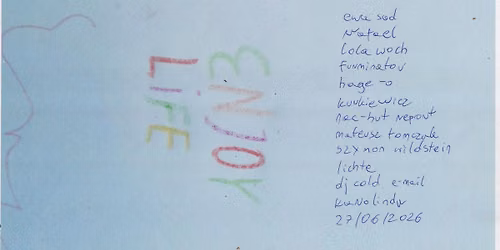 ENJOY
LIFE
ewa sad
Rafael
lola woch
Furminator
hage-o
kurkiewicz
nac-hut report
mateusz tomczyk
szymon wildstein
lichte
dj cold e-mail
27/06/2026